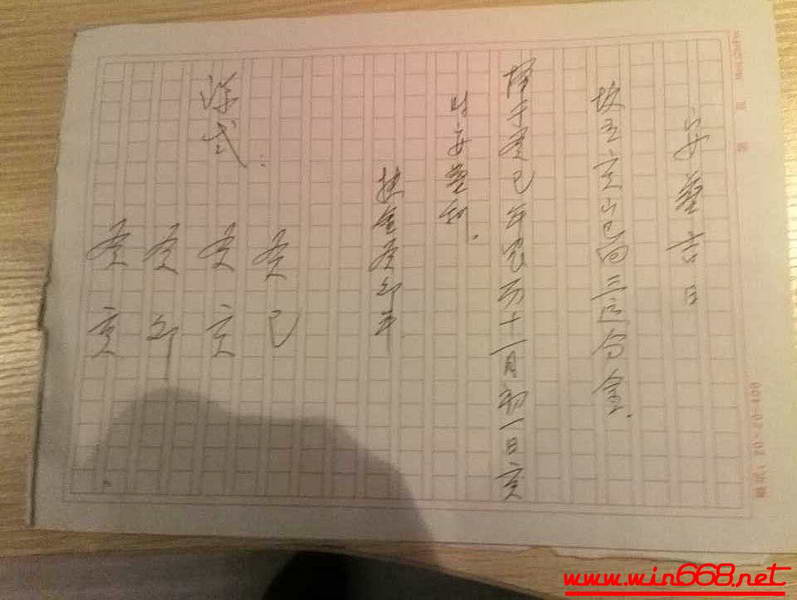 安葬吉日
坟立亥山巳向三分金.
择于癸巳年农历十一月初一日亥
时安葬利.
癸卯
式:
癸巳
癸亥
癸卯
癸亥
20×20=400
www.win668.net